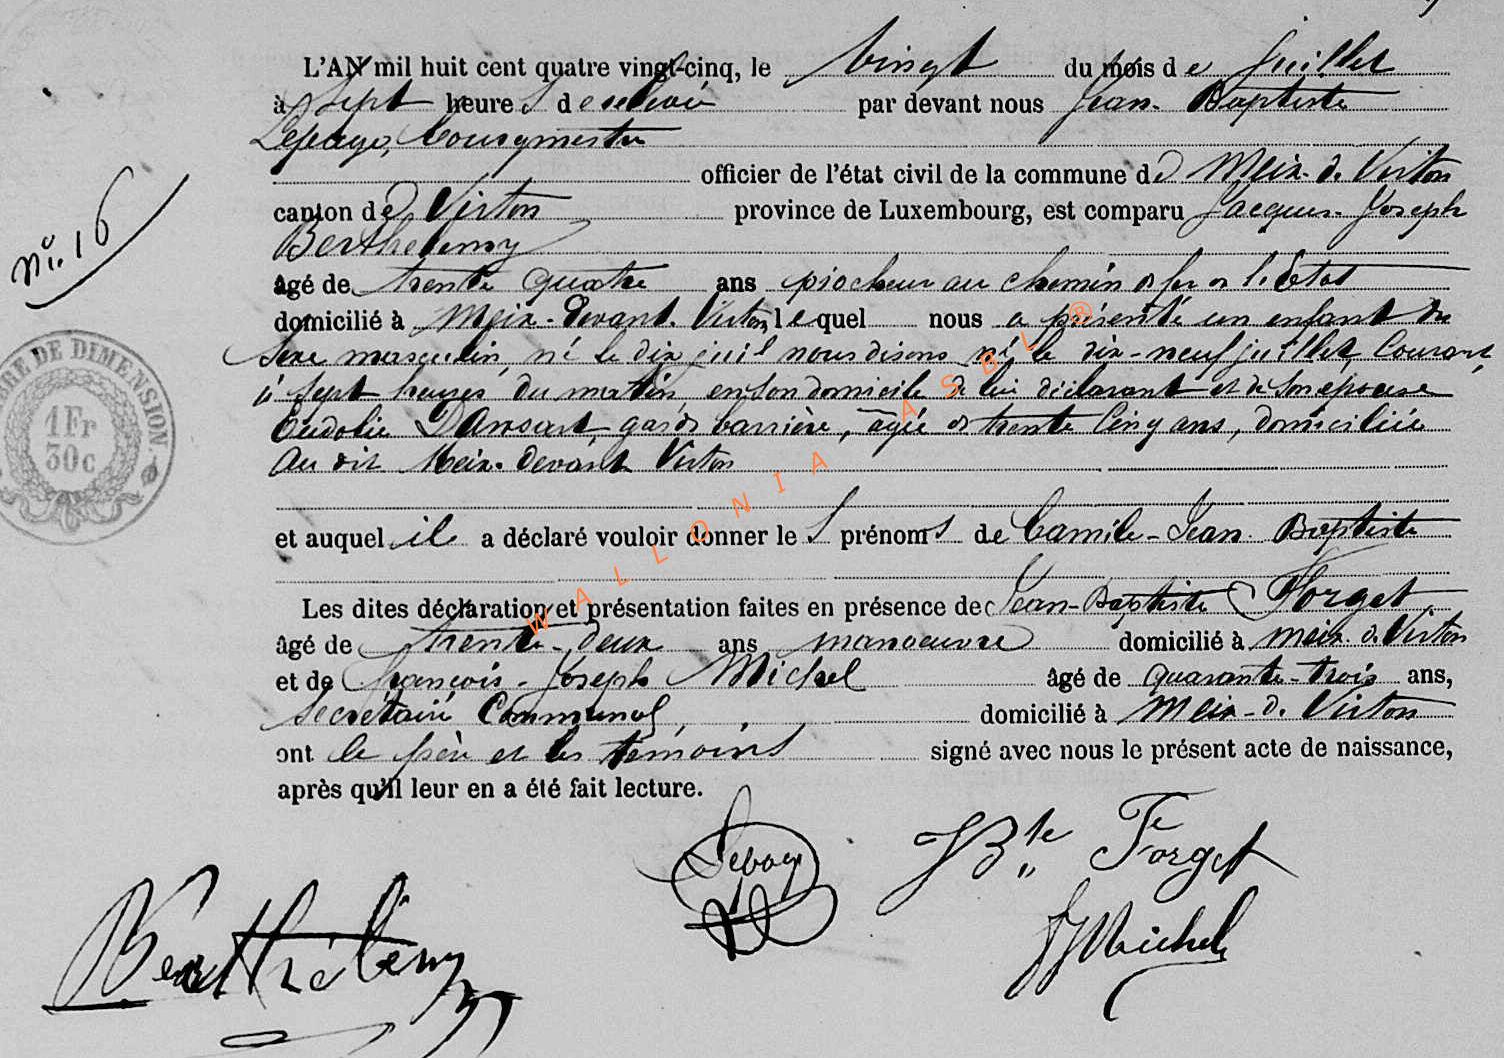 L'AN mil huit cent quatre vingt-cinq, le vingt du mois de juillet
à sept heures de relevée par devant nous Jean-Baptiste
Lepage, bourgmestre
officier de l'état civil de la commune de Meix-d. Virton
canton de Virton province de Luxembourg, est comparu Jacques-Joseph
Berthelemy
N° 16
âgé de trente quatre ans piocheur au chemin de fer de l'Etat
domicilié à Meix-devant-Virton, lequel nous a présenté un enfant du
sexe masculin, né le dix qu'il nous disons né le dix-neuf juillet courant,
à sept heures du matin, en son domicile de lui déclarant et de son épouse
Eudolie Dansart, garde barrière, agée de trente cinq ans, domiciliée
au dit Meix-devant Virton
TIMBRE DE DIMENSION.
1Fr
30c
WALLONIA ASBL ®
et auquel il a déclaré vouloir donner les prénoms de Camile-Jean Baptiste
Les dites déclaration et présentation faites en présence de Jean-Baptiste Forget,
âgé de trente-deux ans manoeuvre domicilié à Meix-d. Virton
et de François-Joseph Michel âgé de quarante-trois ans,
secrétaire communal, domicilié à Meix-d. Virton
ont le père et les témoins signé avec nous le présent acte de naissance,
après qu'il leur en a été fait lecture.
Lepage
JBte Forget
FJMichel
Berthélémy